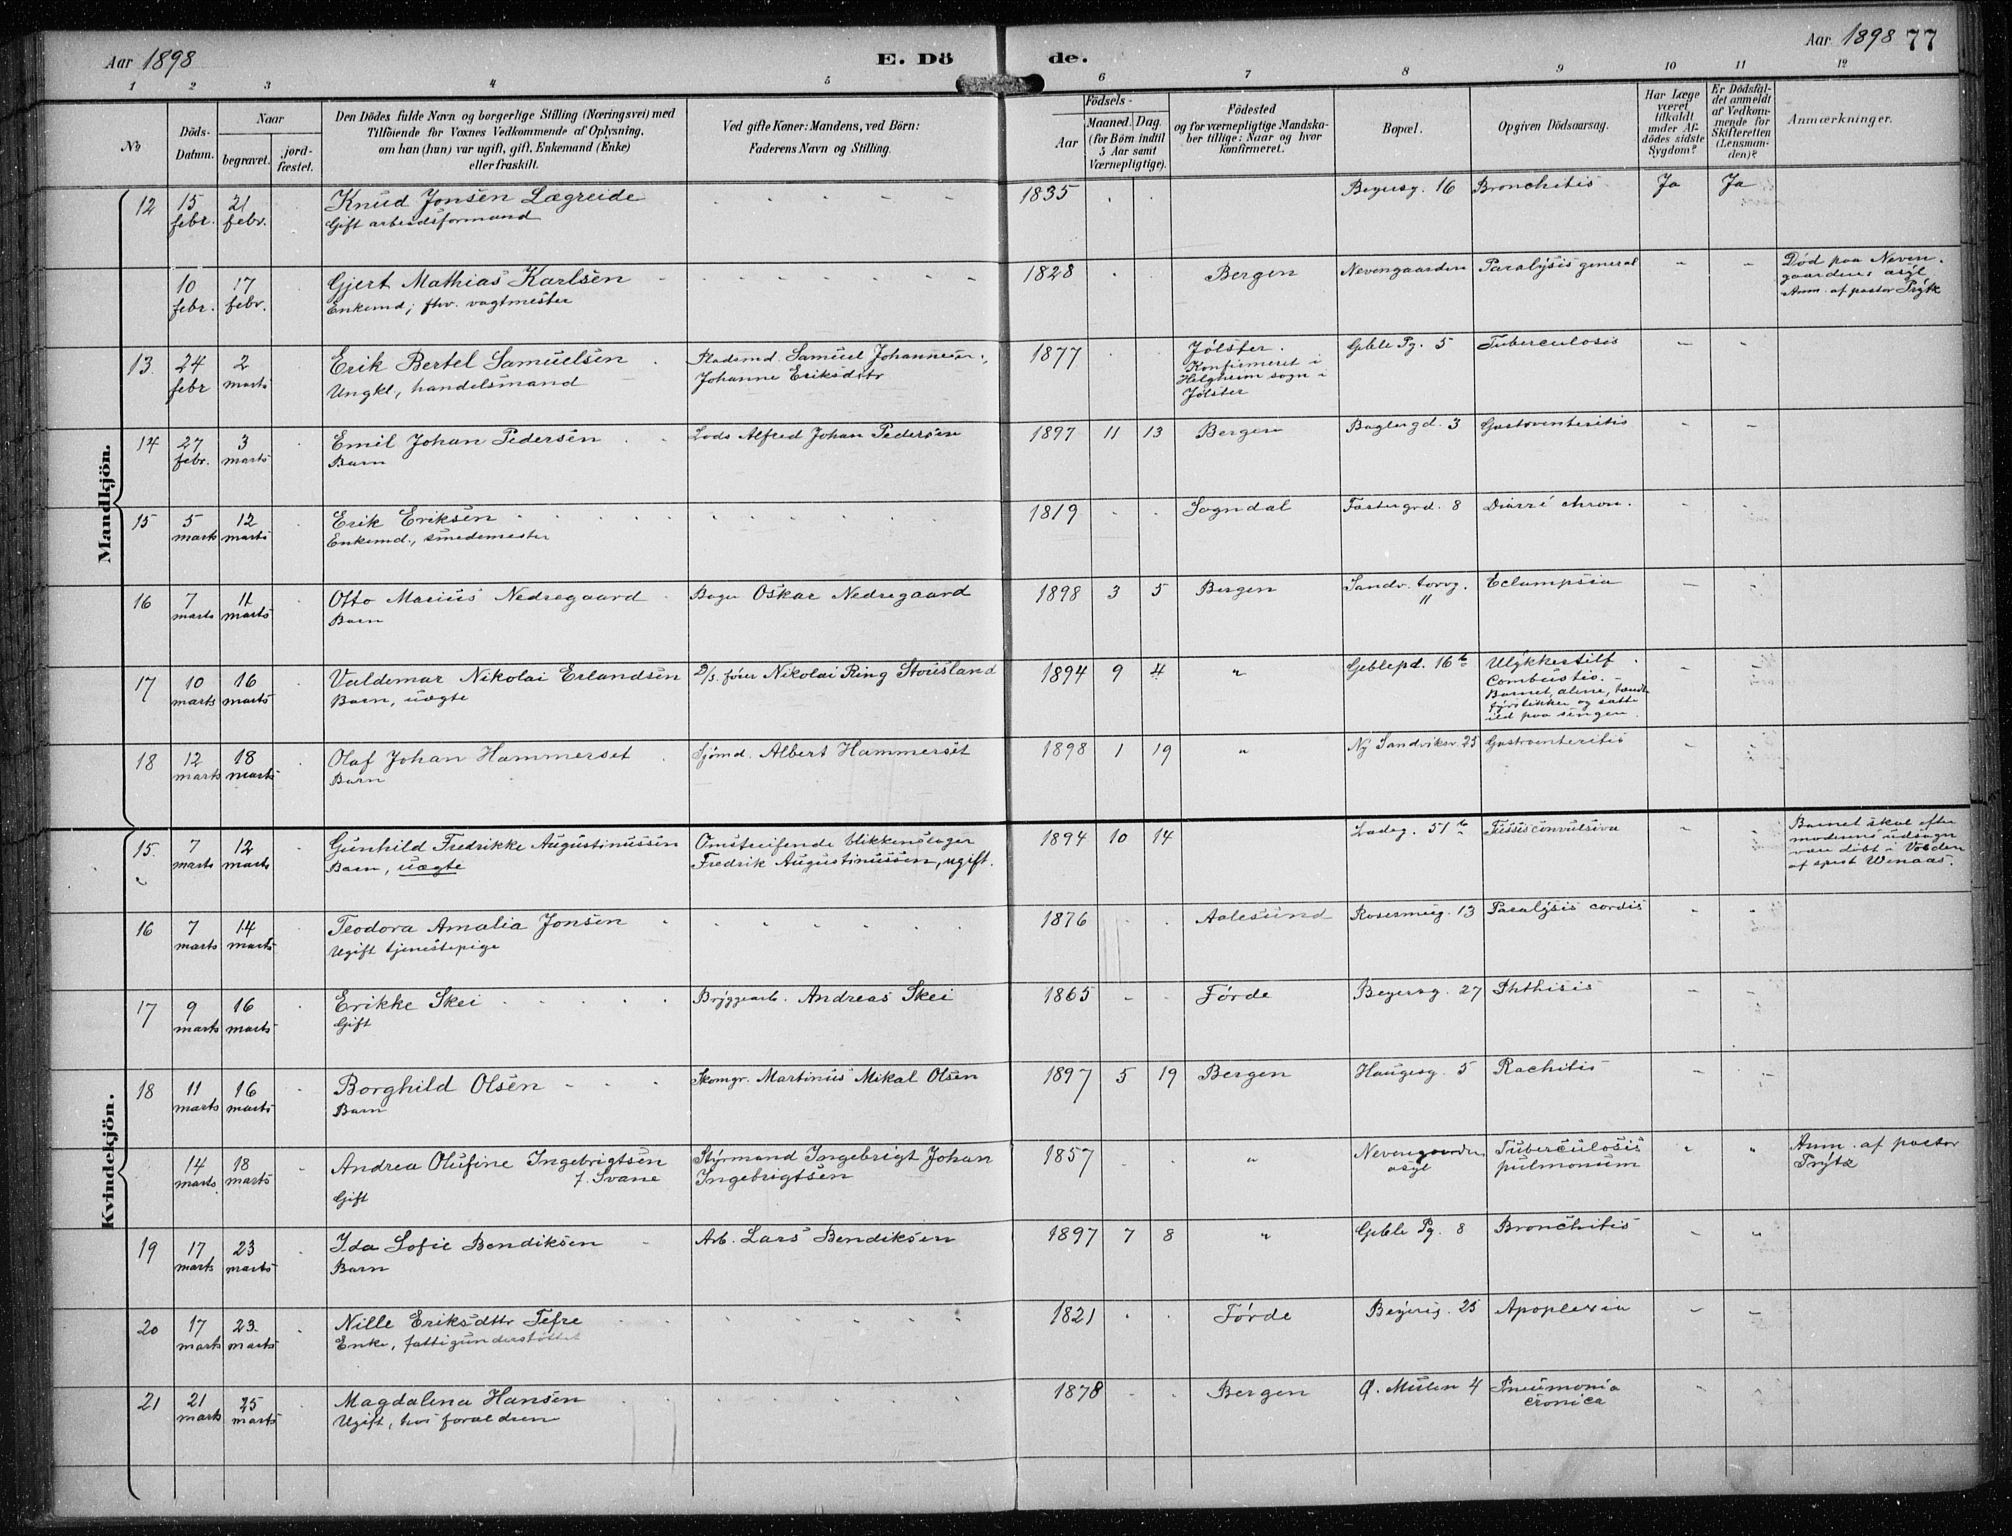 Aar 1898
E. Dö de.
Aar 1898 77
1 2 3 4 5 6 7 8 9 10 11 12
No
Döds-Datum.
Naar
begravet.
jord-fæstet.
Den Dödes fulde Navn og borgerlige Stilling (Næringsvei) med
Tilföiende for Voxnes Vedkommende af Oplysning,
om han (hun) var ugift, gift, Enkemand (Enke)
eller fraskilt.
Ved gifte Koner: Mandens, ved Börn:
Faderens Navn og Stilling.
Födsels-
Aar
Maaned. Dag
(for Börn indtil
5 Aar samt
Værnepligtige).
Födested
og for værnepligtige Mandska-
ber tillige: Naar og hvor
konfirmeret.
Bopæl.
Opgiven Dödsaarsag.
Har Læge
været
tilkaldt
under Af-
dödes sidste
Sygdom?
Er Dödsfal-
det anmeldt
af Vedkom-
mende for
Skifteretten
(Lensman-
den)?
Anmærkninger.
Mandkjön.
12 15 febr. 21 febr. Knud Jonsen Lægreide 1835 Beyersg. 16 Bronchitis Ja Ja
Gift arbeidsformand
10 febr. 17 febr. Gjert Mathias Karlsen 1828 Bergen Nevengaarden Paralysis general - - Död paa Neven-
gaardens asyl
Anm. af pastor Trytz
Enkemd; fhv. vagtmester
13. 24 febr 2 marts Erik Bertel Samuelsen Pladsmd. Samuel Johannesen, 1877 Jølster. Geble Pg. 5 Tuberculosis - -
Ungkl, handelsmand Johanne Eriksdttr Konfirmeret i
Helgheim sogn i
Jølster
14 27 febr. 3 marts Emil Johan Pedersen Lods Alfred Johan Pedersen 1897 11 13 Bergen Baglergd. 3 Gastroenteritis - -
Barn
15 5 marts 12 marts Erik Eriksen 1819 Sogndal Fostergrd. 8 Diarré chron. - -
Enkemd., smedemester
16 7 marts 11 marts Otto Marius Nedregaard Bager Oskar Nedregaard 1898 3 5 Bergen Sandv. torvg. 11 Eclampsia - -
Barn
17 10 marts 16 marts Valdemar Nikolai Erlandsen D/s. fører Nikolai Ring Stousland 1894 9 4 " Geblepd. 16 b Ulykkestilf.
Combustio. -
Barnet, alene, tændte
fyrstikker og satte
ild paa sengen.
Barn, uægte
18 12 marts 18 marts Olaf Johan Hammerset Sjømd. Albert Hammerset 1898 1 19 " Ny Sandviksv. 25 Gastroenteritis - -
Barn
Kvindekjön.
15. 7 marts 12 marts Gunhild Fredrikke Augustinussen Omstreifende blikkenslager 1894 10 14 Ladeg. 51 b Tussis convulsiva - - Barnet skal efter
moderens udsagn
være døbt i Volden
af sprst Wenaas.
Barn, uægte Fredrik Augustinussen, ugift.
16 7 marts 14 marts Teodora Amalia Jonsen 1876 Aalesund Rosesmug. 13 Paralysis cordis
Ugift tjenestepige
17 9 marts 16 marts Erikke Skei Bryggearb. Andreas Skei 1865 Førde Beyersg. 27 Phthisis - -
Gift
18 11 marts 16 marts Borghild Olsen Skomgr. Martinus Mikal Olsen 1897 5 19 Bergen Haugesg. 5 Rachitis - -
Barn
14 marts 18 marts Andrea Olufine Ingebrigtsen Styrmand Ingebrigt Johan 1857 " Nevengaarden Tuberculosis " " Anm. af pastor
f. Svane Ingebrigtsen asyl pulmonum Trytz
Gift
19 17 marts 23 marts Ida Sofie Bendiksen Arb. Lars Bendiksen 1897 7 8 " Geble Pg. 8 Bronchitis - -
Barn
20 17 marts 23 marts Nille Eriksdttr Tefre 1821 Førde Beyersg. 25 Apoplexia - -
Enke, fattigunderstøttet
21 21 marts 25 marts Magdalena Hansen 1878 Bergen Ø. Mulen 4 Pneumonia
cronica
Ugift, hos forældrene